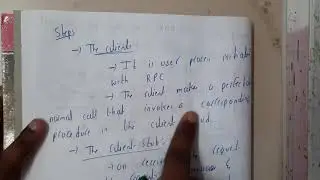 Steps
→ The clients
→ It is user process
with RPC
→ The client makes a perfectly
normal call that invokes a corresponding
procedure in the client
→ The client stub:
→ on